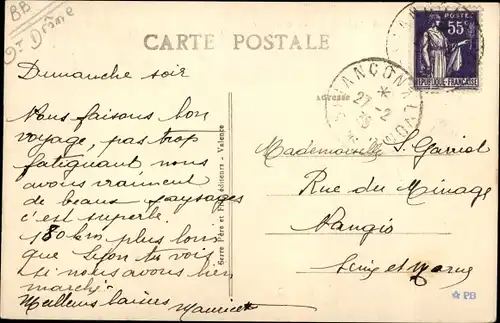 BB
Dt Drôme
CARTE POSTALE
POSTES
55c
REPUBLIQUE FRANÇAISE
27-2
Dimanche soir
Adresse
Nous faisons bon
voyage, pas trop
fatiguant nous
avons vraiment
de beaux paysages
c'est superbe.
180 km plus loin
que Lyon tu vois
si nous avons bien
marché.
Meilleurs baisers
Maurice
Serre Père et Fils, éditeurs - Valence
Mademoiselle S. Garriot
Rue du Minage
Nangis
Seine et Marne
PB